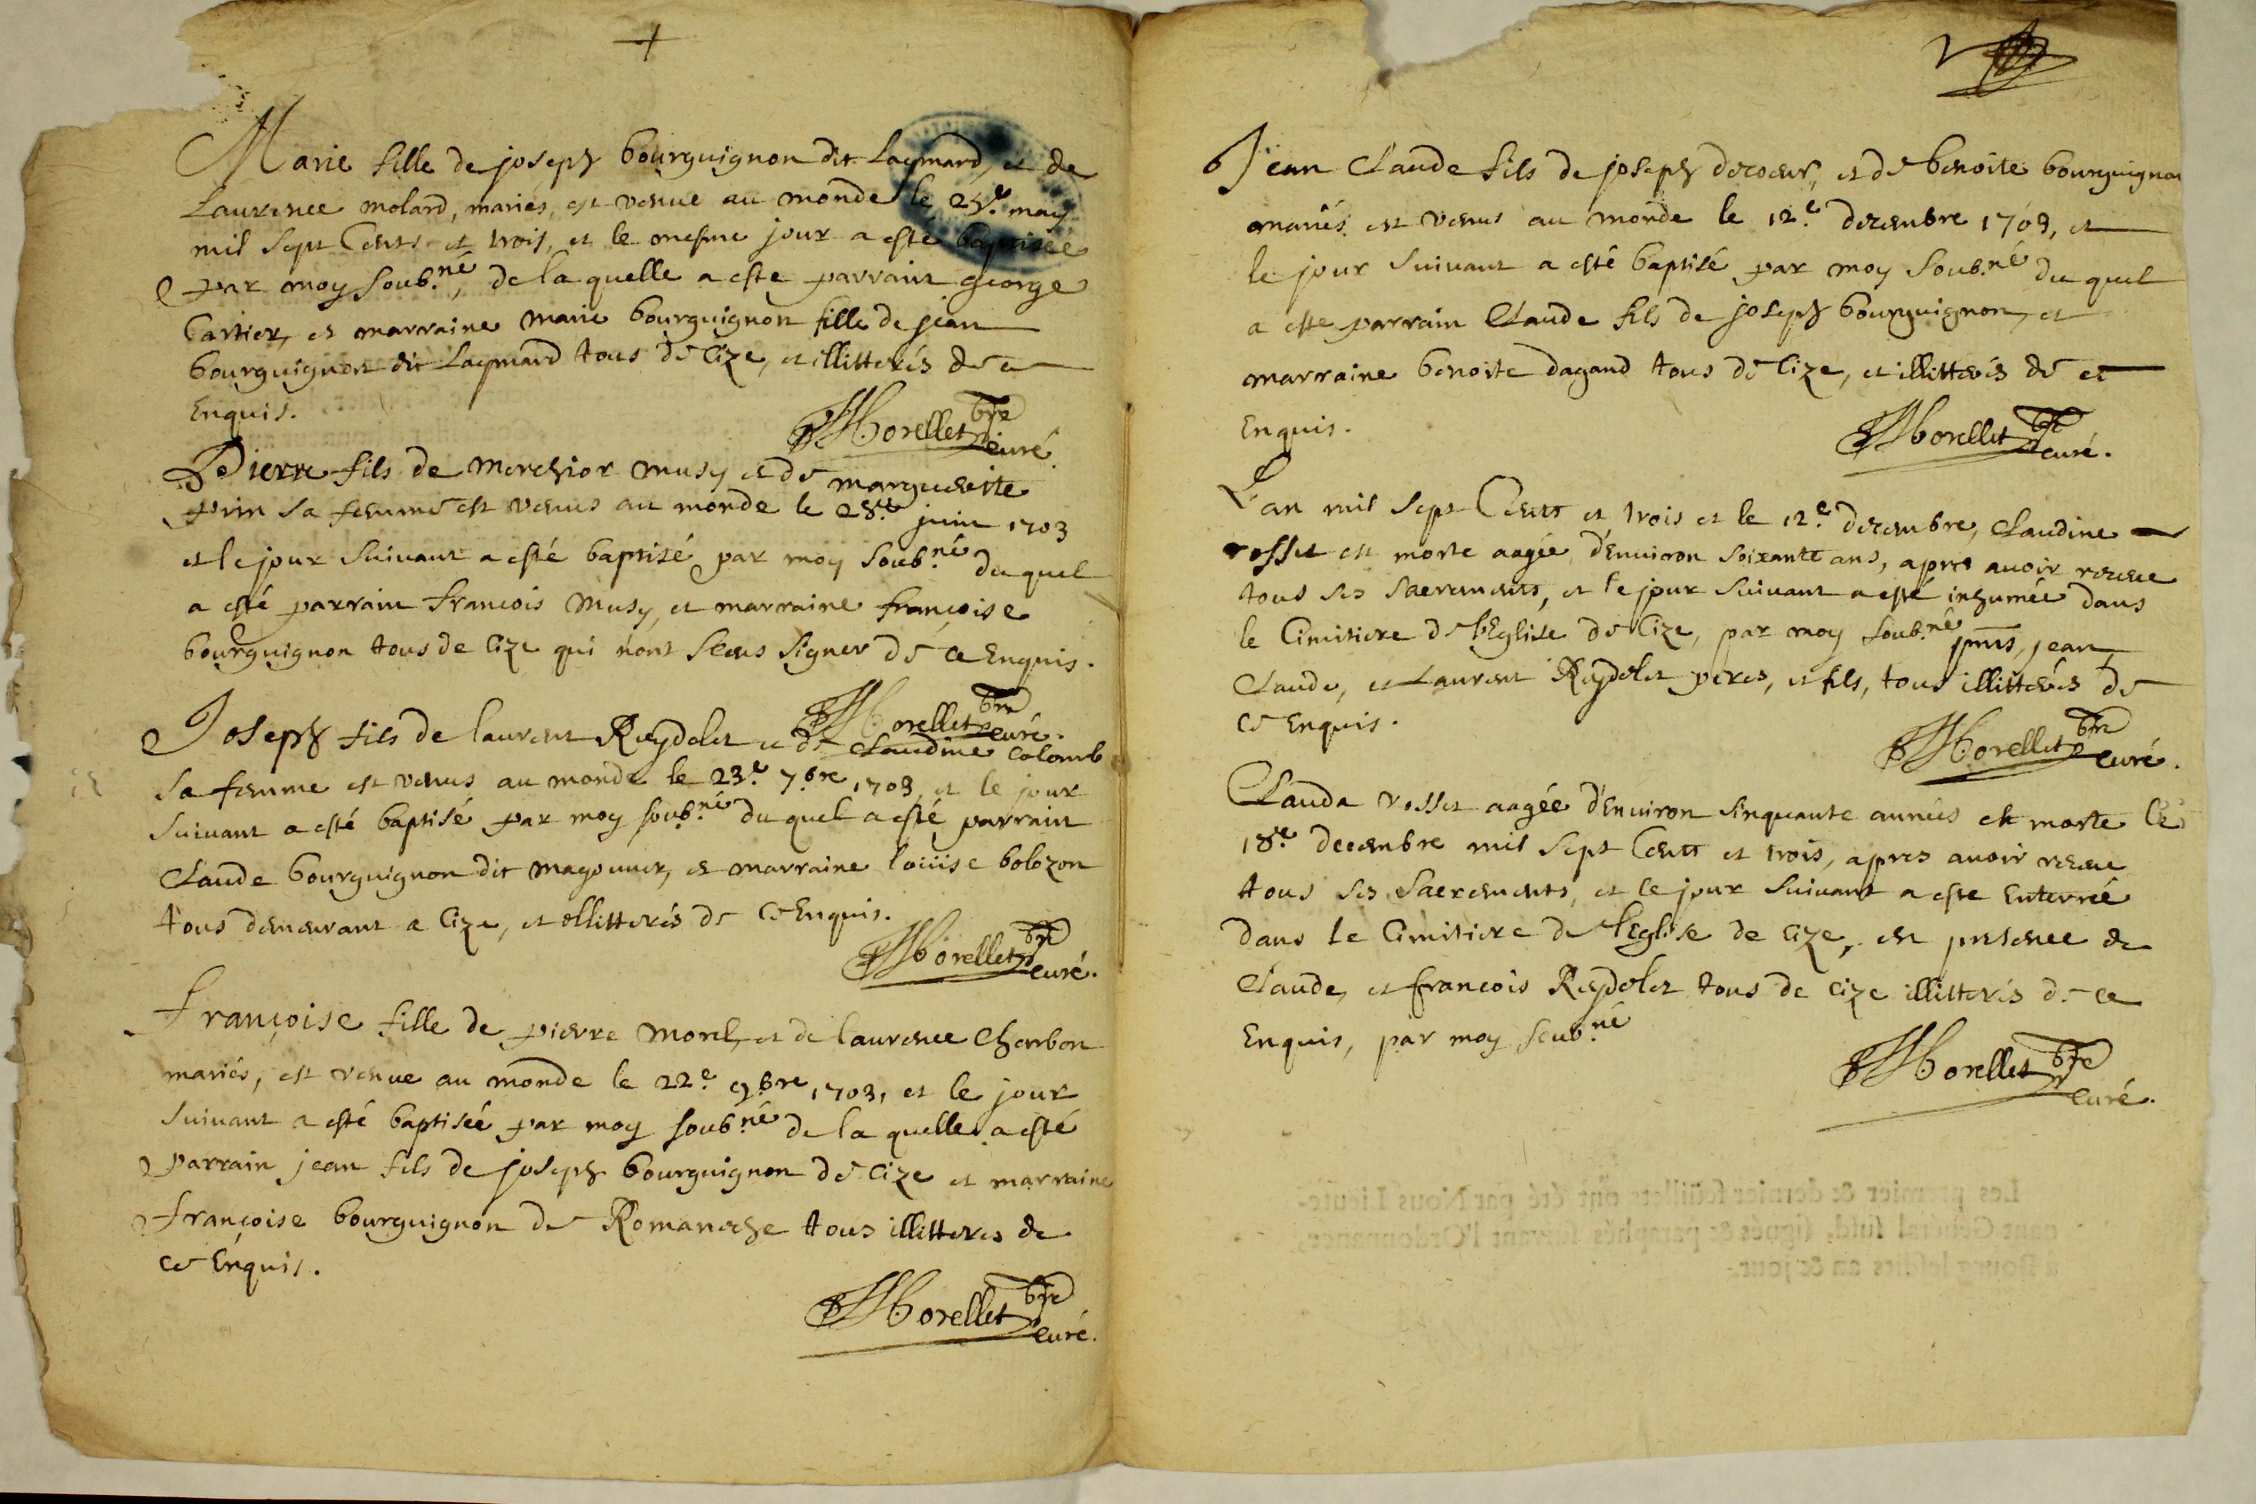 Marie fille de joseph bourguignon dit Laymard, et de
Laurence molard, mariés, est venue au monde le 25.e may
mil sept Cents et trois, et le mesme jour a esté baptisée
par moy soub.né, de la quelle a este parrain george
Cartier, et marraine marie bourguignon fille de jean
bourguignon dit Laymard tous de Cize, et illitterés de ce
Enquis.
Morellet pbre curé.
Pierre fils de Merchior musy et de marguerite
prin sa femme est venus au monde le 28.e juin 1703
et le jour suivant a esté baptisé par moy soub.né du quel
a esté parrain françois Musy, et marraine françoise
bourguignon tous de Cize qui n'ont sceus signer de ce Enquis.
Morellet pbre curé.
Joseph fils de laurent Reydelet et de Claudine Colomb
sa femme est venus au monde le 23.e 7.bre 1703, et le jour
suivant a esté baptisé par moy soub.né du quel a esté parrain
Claude bourguignon dit magonner, et marraine loüise bolozon
tous demeurant a Cize, et illitterés de ce Enquis.
Morellet pbre curé.
Françoise fille de pierre Morel, et de laurence Charbon
mariés, est venue au monde le 22.e 9.bre 1703, et le jour
suivant a esté baptisée par moy soub.né de la quelle a esté
parrain jean fils de joseph bourguignon de Cize et marraine
françoise bourguignon de Romaneche tous illitteres de
ce Enquis.
Morellet pbre curé.
2
Jean Claude fils de joseph decoeur, et de benoite bourguignon
mariés est venus au monde le 12.e decembre 1703, et
le jour suivant a esté baptisé par moy soub.né du quel
a esté parrain Claude fils de joseph bourguignon, et
marraine benoite dagand tous de Cize, et illitterés de ce
Enquis.
Morellet pbre curé.
L'an mil sept Centt et trois et le 12.e decembre, Claudine
rosset est morte aagée d'Environ soixante ans, apres avoir receue
tous ses sacrements, et le jour suivant a esté inhumée dans
le Cimitiere de l'Eglise de Cize, par moy soub.né pnts, jean
Claude, et Laurent Reydelet peres, et fils, tous illitterés de
ce Enquis.
Morellet pbre curé.
Clauda rosset aagée d'Environ sinquante années est morte le
18.e decembre mil sept Centt et trois, apres avoir receue
tous ses sacrements, et le jour suivant a esté Enterrée
dans le Cimitiere de l'Eglise de Cize, en presence de
Claude, et françois Reydelet tous de Cize illitterés de ce
Enquis, par moy soub.né
Morellet pbre curé.
Les premier & dernier feüillets ont été par Nous Lieute-
nant Général susd. signés & paraphés suivant l'Ordonnance,
à Bourg lesdits an & jour.